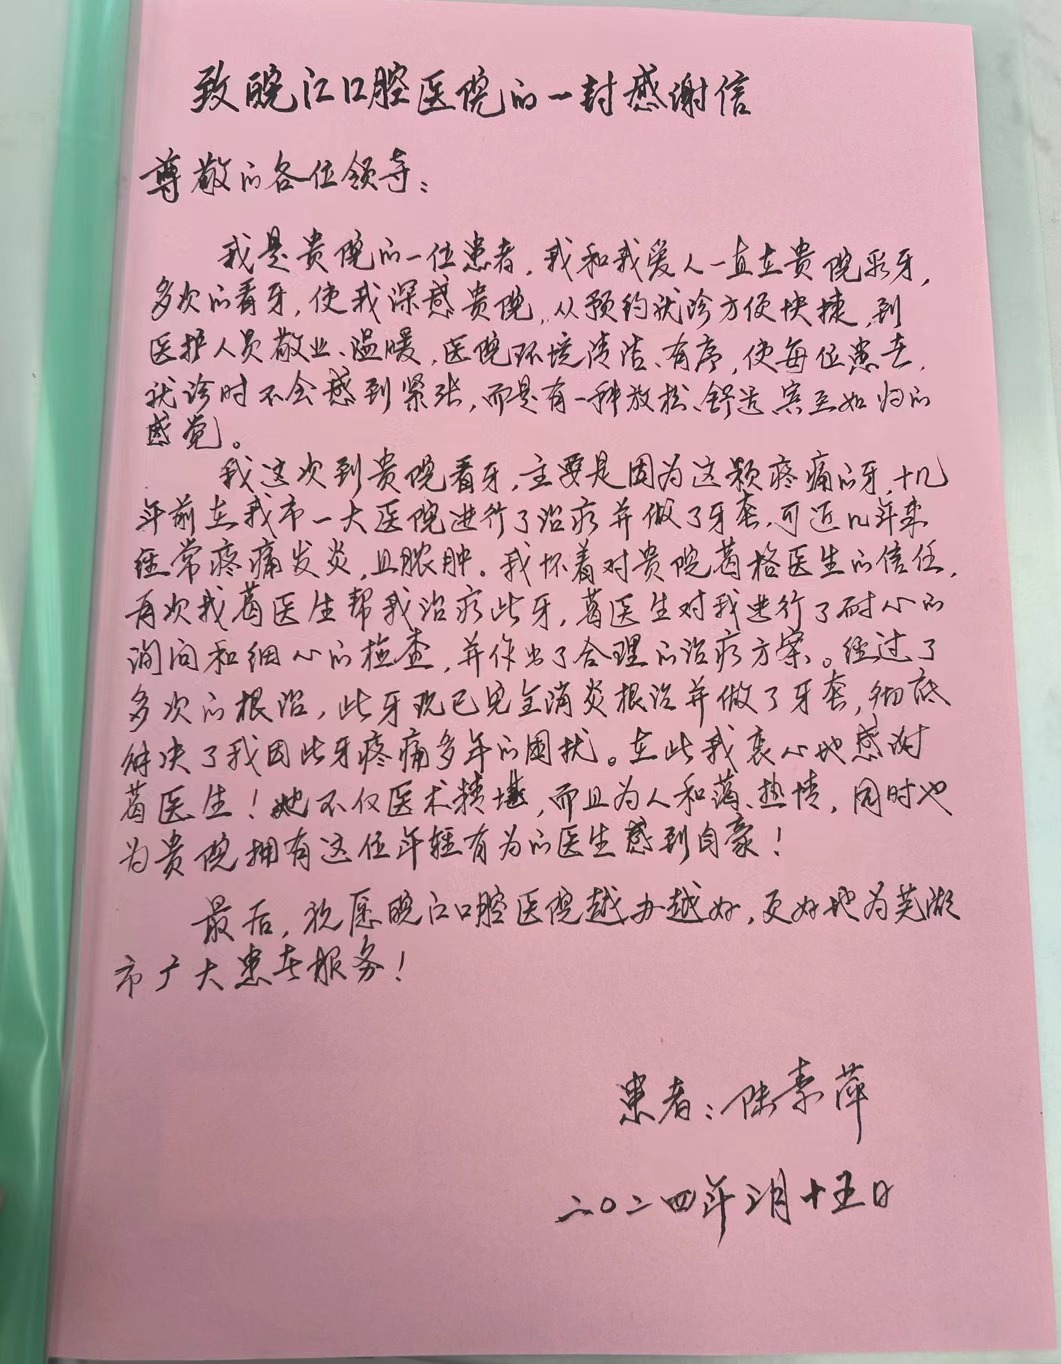 致皖江口腔医院的一封感谢信
尊敬的各位领导：
我是贵院的一位患者，我和我爱人一直在贵院看牙，
多次的看牙，使我深感贵院，从预约就诊方便快捷，到
医护人员敬业、温暖，医院环境清洁、有序，使每位患者，
就诊时不会感到紧张，而是有一种放松、舒适、宾至如归的
感觉。
我这次到贵院看牙，主要是因为这颗疼痛的牙，十几
年前在我市一大医院进行了治疗并做了牙套，可近几年来
经常疼痛发炎，且脓肿。我怀着对贵院葛格医生的信任，
再次找葛医生帮我治疗此牙，葛医生对我进行了耐心的
询问和细心的检查，并作出了合理的治疗方案。经过了
多次的根治，此牙现已完全消炎根治并做了牙套，彻底
解决了我因此牙疼痛多年的困扰。在此我衷心地感谢
葛医生！她不仅医术精堪，而且为人和蔼、热情，同时也
为贵院拥有这位年轻有为的医生感到自豪！
最后，祝愿皖江口腔医院越办越好，更好地为芜湖
市广大患者服务！
患者：陈素萍
二〇二四年 月十五日